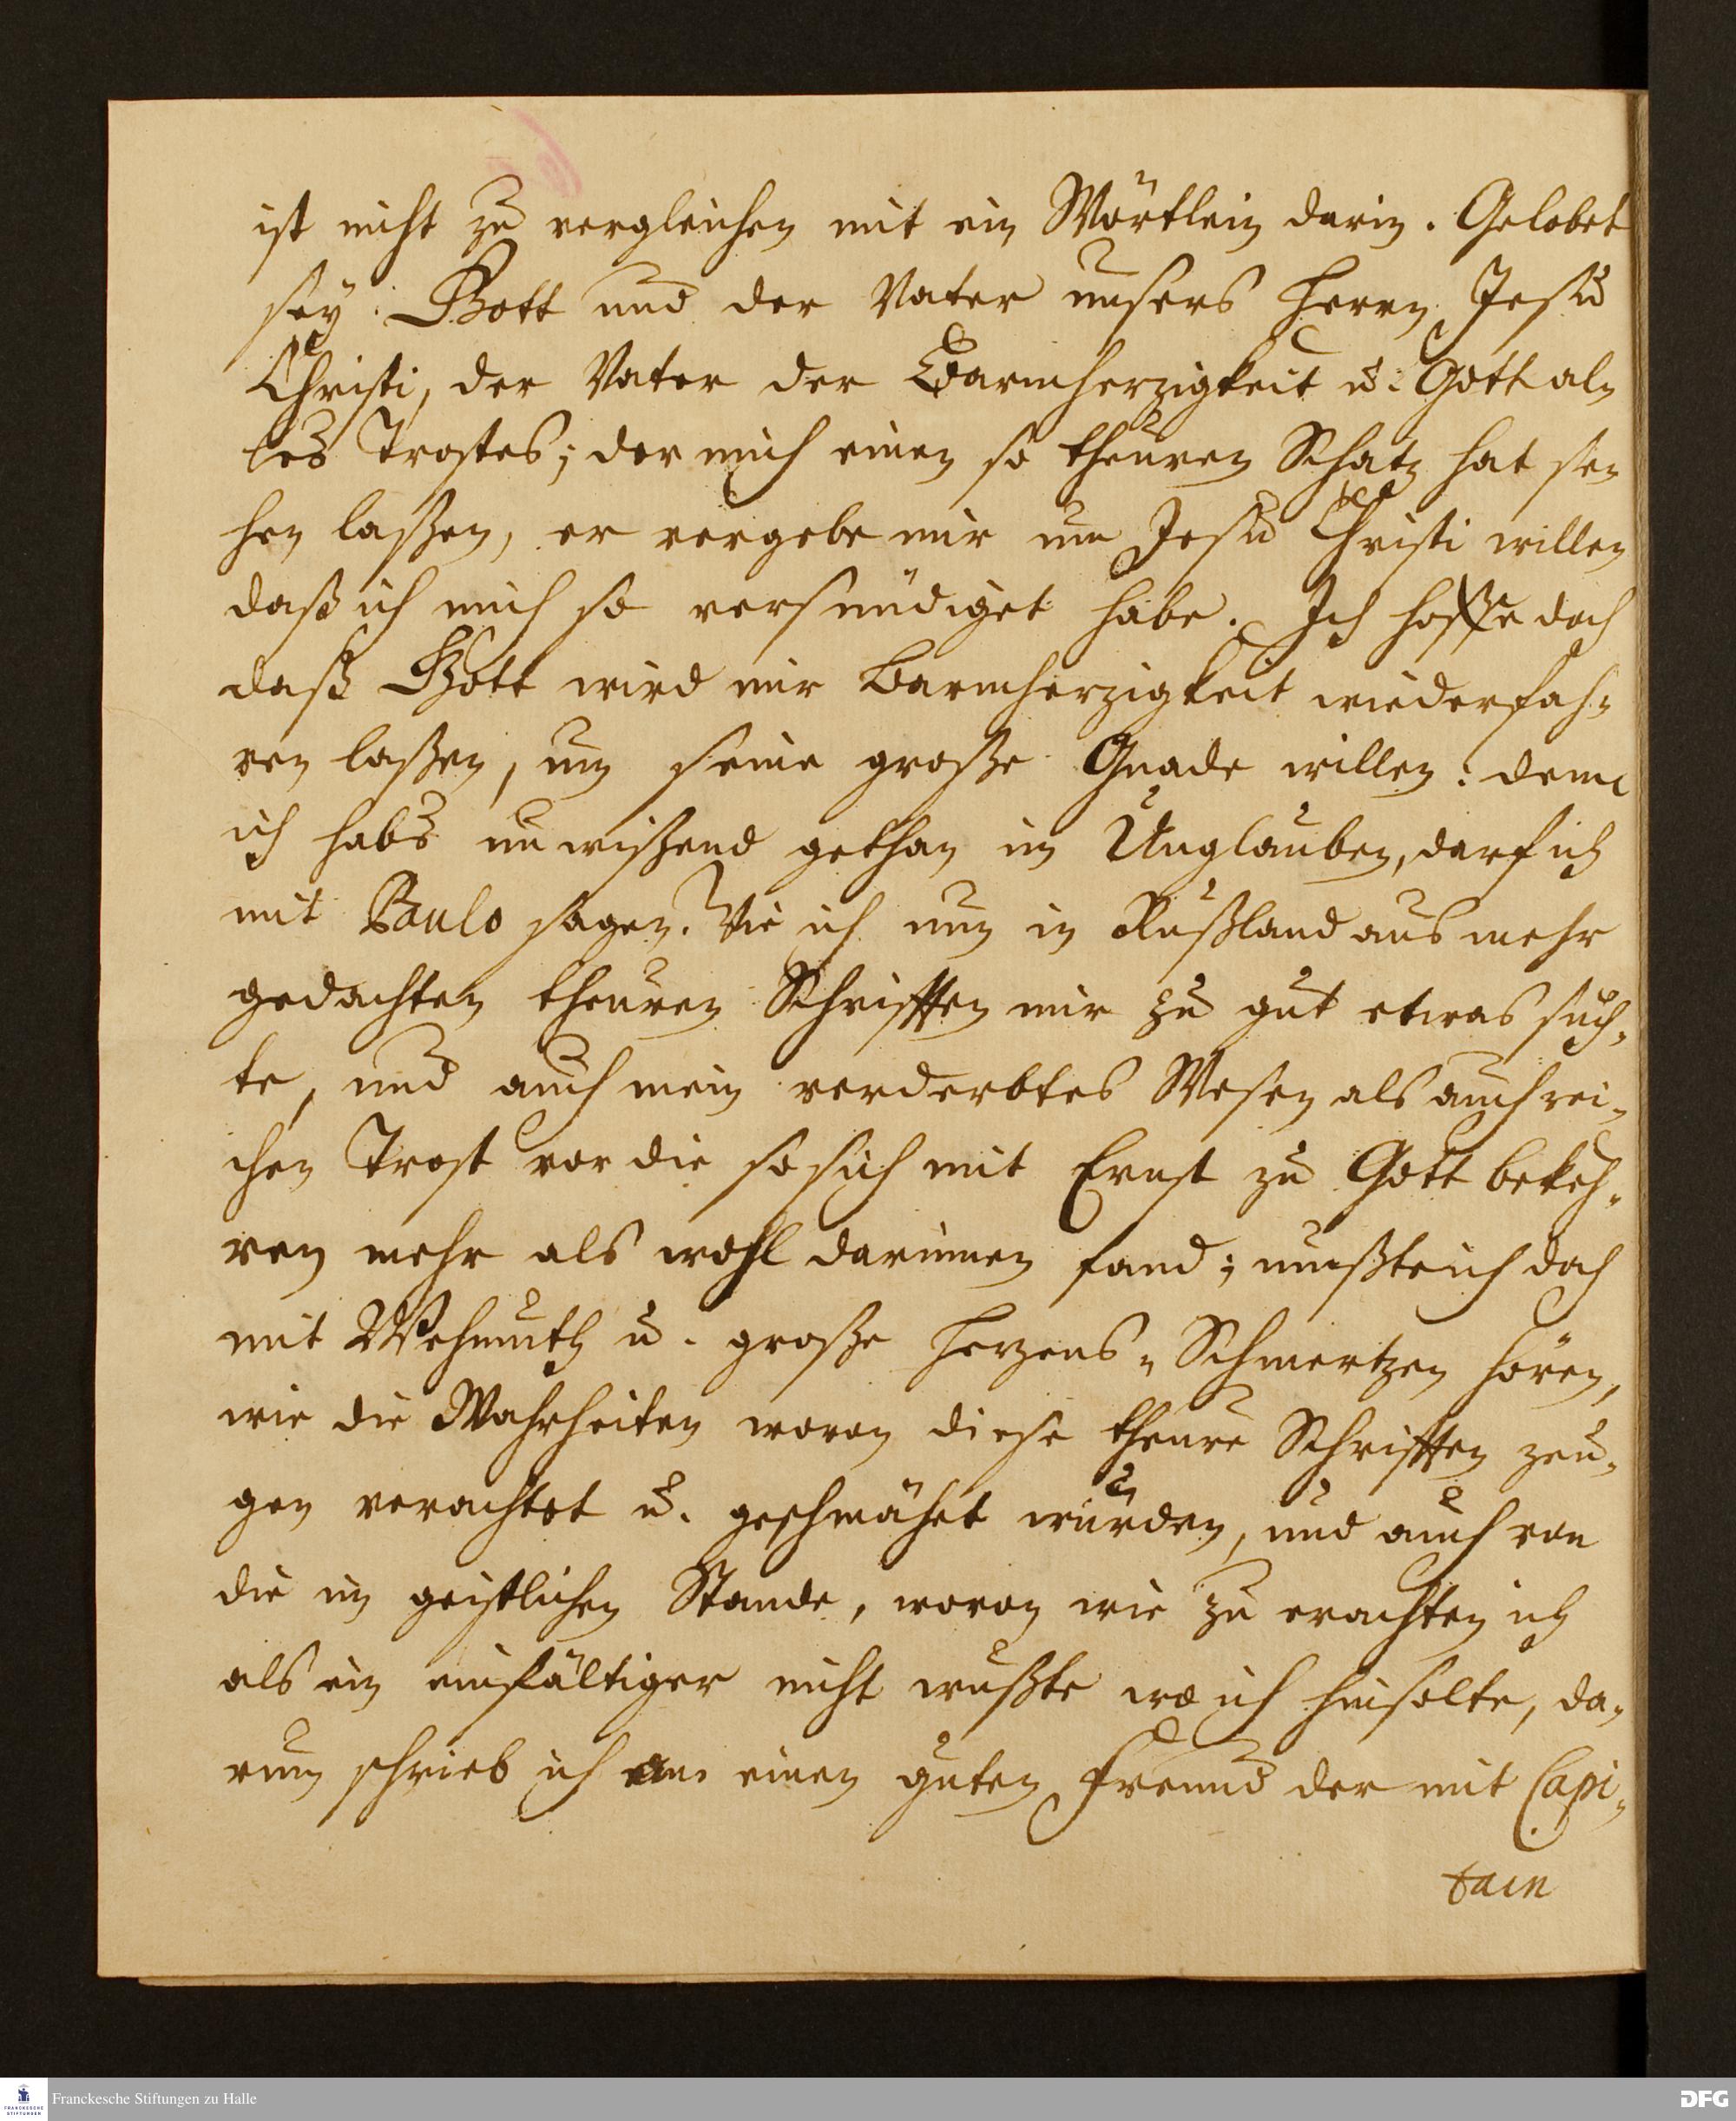 ist nicht zu vergleichen mit ein Wörtlein darin. Gelobet
sey Gott und der Vater unsers Herrn Jesu
Christi, der Vater der Barmherzigkeit u. Gott al-
les Trostes; der mich einen so theuren Schatz hat se-
hen laßen, er vergebe mir um Jesu Christi willen
daß ich mich so versündiget habe. Ich hoffe doch
daß Gott wird mir Barmherzigkeit wiederfah-
ren laßen, um seine große Gnade willen: denn
ich habs unwißend gethan im Unglauben, darf ich
mit Paulo sagen. Wie ich nun in Rußland aus mehr
gedachten theuren Schrifften mir zu gut etwas such-
te, und auch mein verderbtes Wesen als auch rei-
chen Trost vor die so sich mit Ernst zu Gott bekeh-
ren mehr als wohl darinnen fand; mußte ich doch
mit Wehmuth u. große Herzens-Schmertzen hören,
wie die Wahrheiten wovon diese theure Schrifften zeu-
gen verachtet u. geschmähet würden, und auch von
die im geistlichen Stande, wovon wie zu erachten ich
als ein einfältiger nicht wußte wo ich hinsolte, da-
rum schrieb ich an einen guten Freund der mit Capi-
tain
Franckesche Stiftungen zu Halle
FRANCKESCHE STIFTUNGEN
DFG